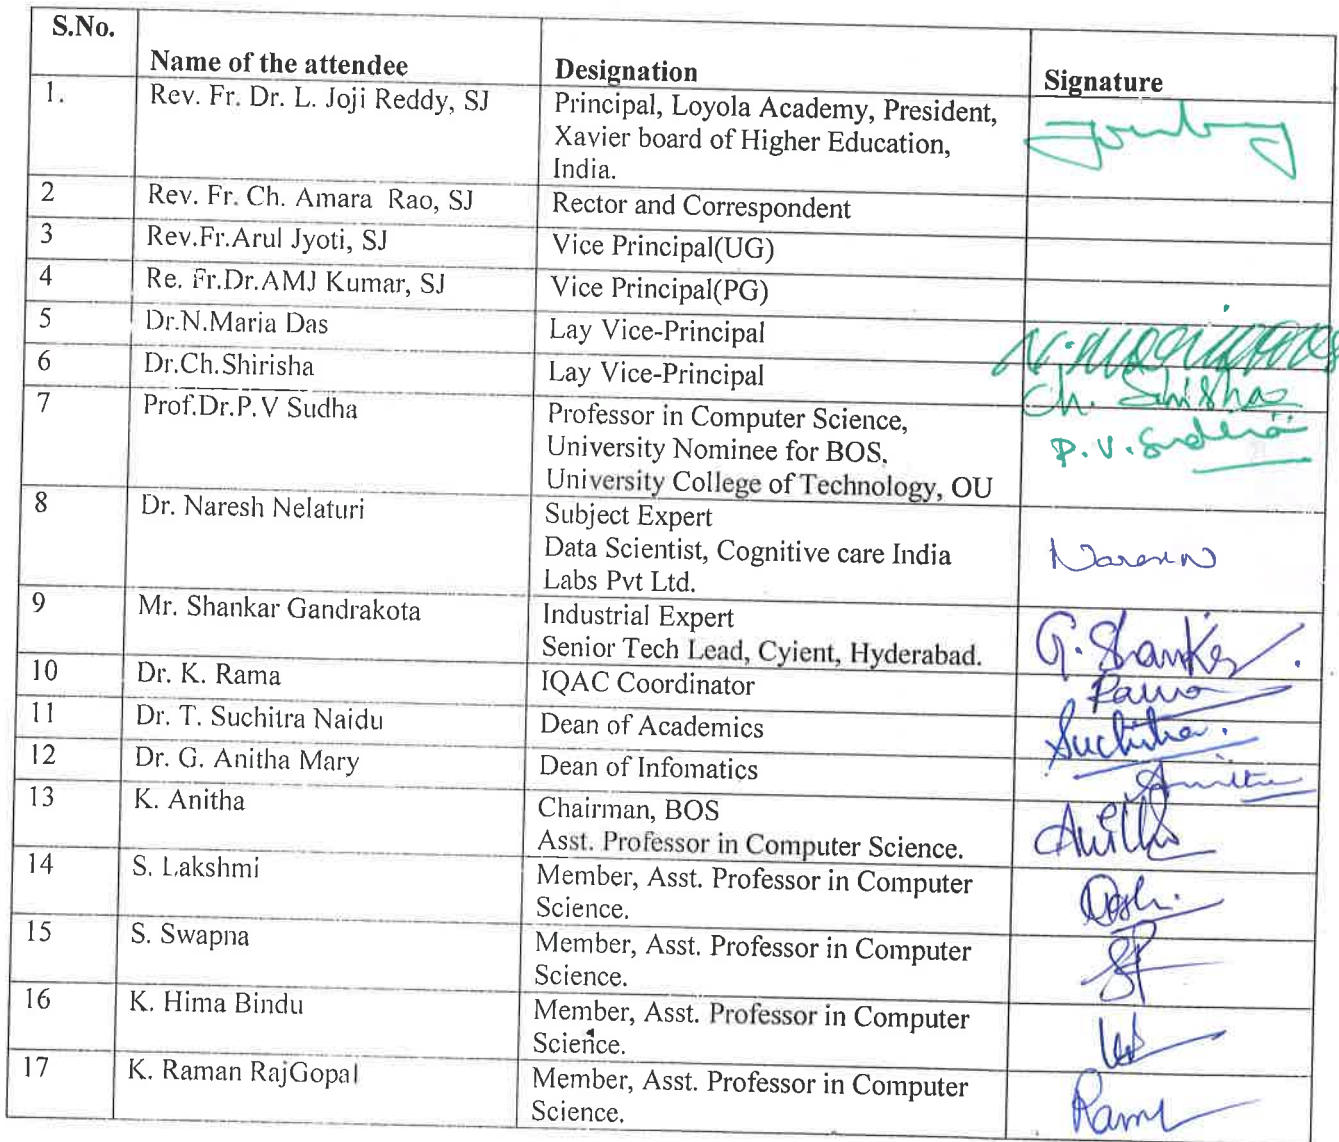 S.No. Name of the attendee Designation Signature
1. Rev. Fr. Dr. L. Joji Reddy, SJ Principal, Loyola Academy, President,
Xavier board of Higher Education,
India.
2 Rev. Fr. Ch. Amara Rao, SJ Rector and Correspondent
3 Rev.Fr.Arul Jyoti, SJ Vice Principal(UG)
4 Re. Fr.Dr.AMJ Kumar, SJ Vice Principal(PG)
5 Dr.N.Maria Das Lay Vice-Principal N.
6 Dr.Ch.Shirisha Lay Vice-Principal Ch.
7 Prof.Dr.P.V Sudha Professor in Computer Science, P.V.Sudha
University Nominee for BOS,
University College of Technology, OU
8 Dr. Naresh Nelaturi Subject Expert
Data Scientist, Cognitive care India
Labs Pvt Ltd.
9 Mr. Shankar Gandrakota Industrial Expert G.
Senior Tech Lead, Cyient, Hyderabad.
10 Dr. K. Rama IQAC Coordinator Rama
11 Dr. T. Suchitra Naidu Dean of Academics
12 Dr. G. Anitha Mary Dean of Infomatics
13 K. Anitha Chairman, BOS
Asst. Professor in Computer Science.
14 S. Lakshmi Member, Asst. Professor in Computer
Science.
15 S. Swapna Member, Asst. Professor in Computer
Science.
16 K. Hima Bindu Member, Asst. Professor in Computer
Science.
17 K. Raman RajGopal Member, Asst. Professor in Computer
Science.